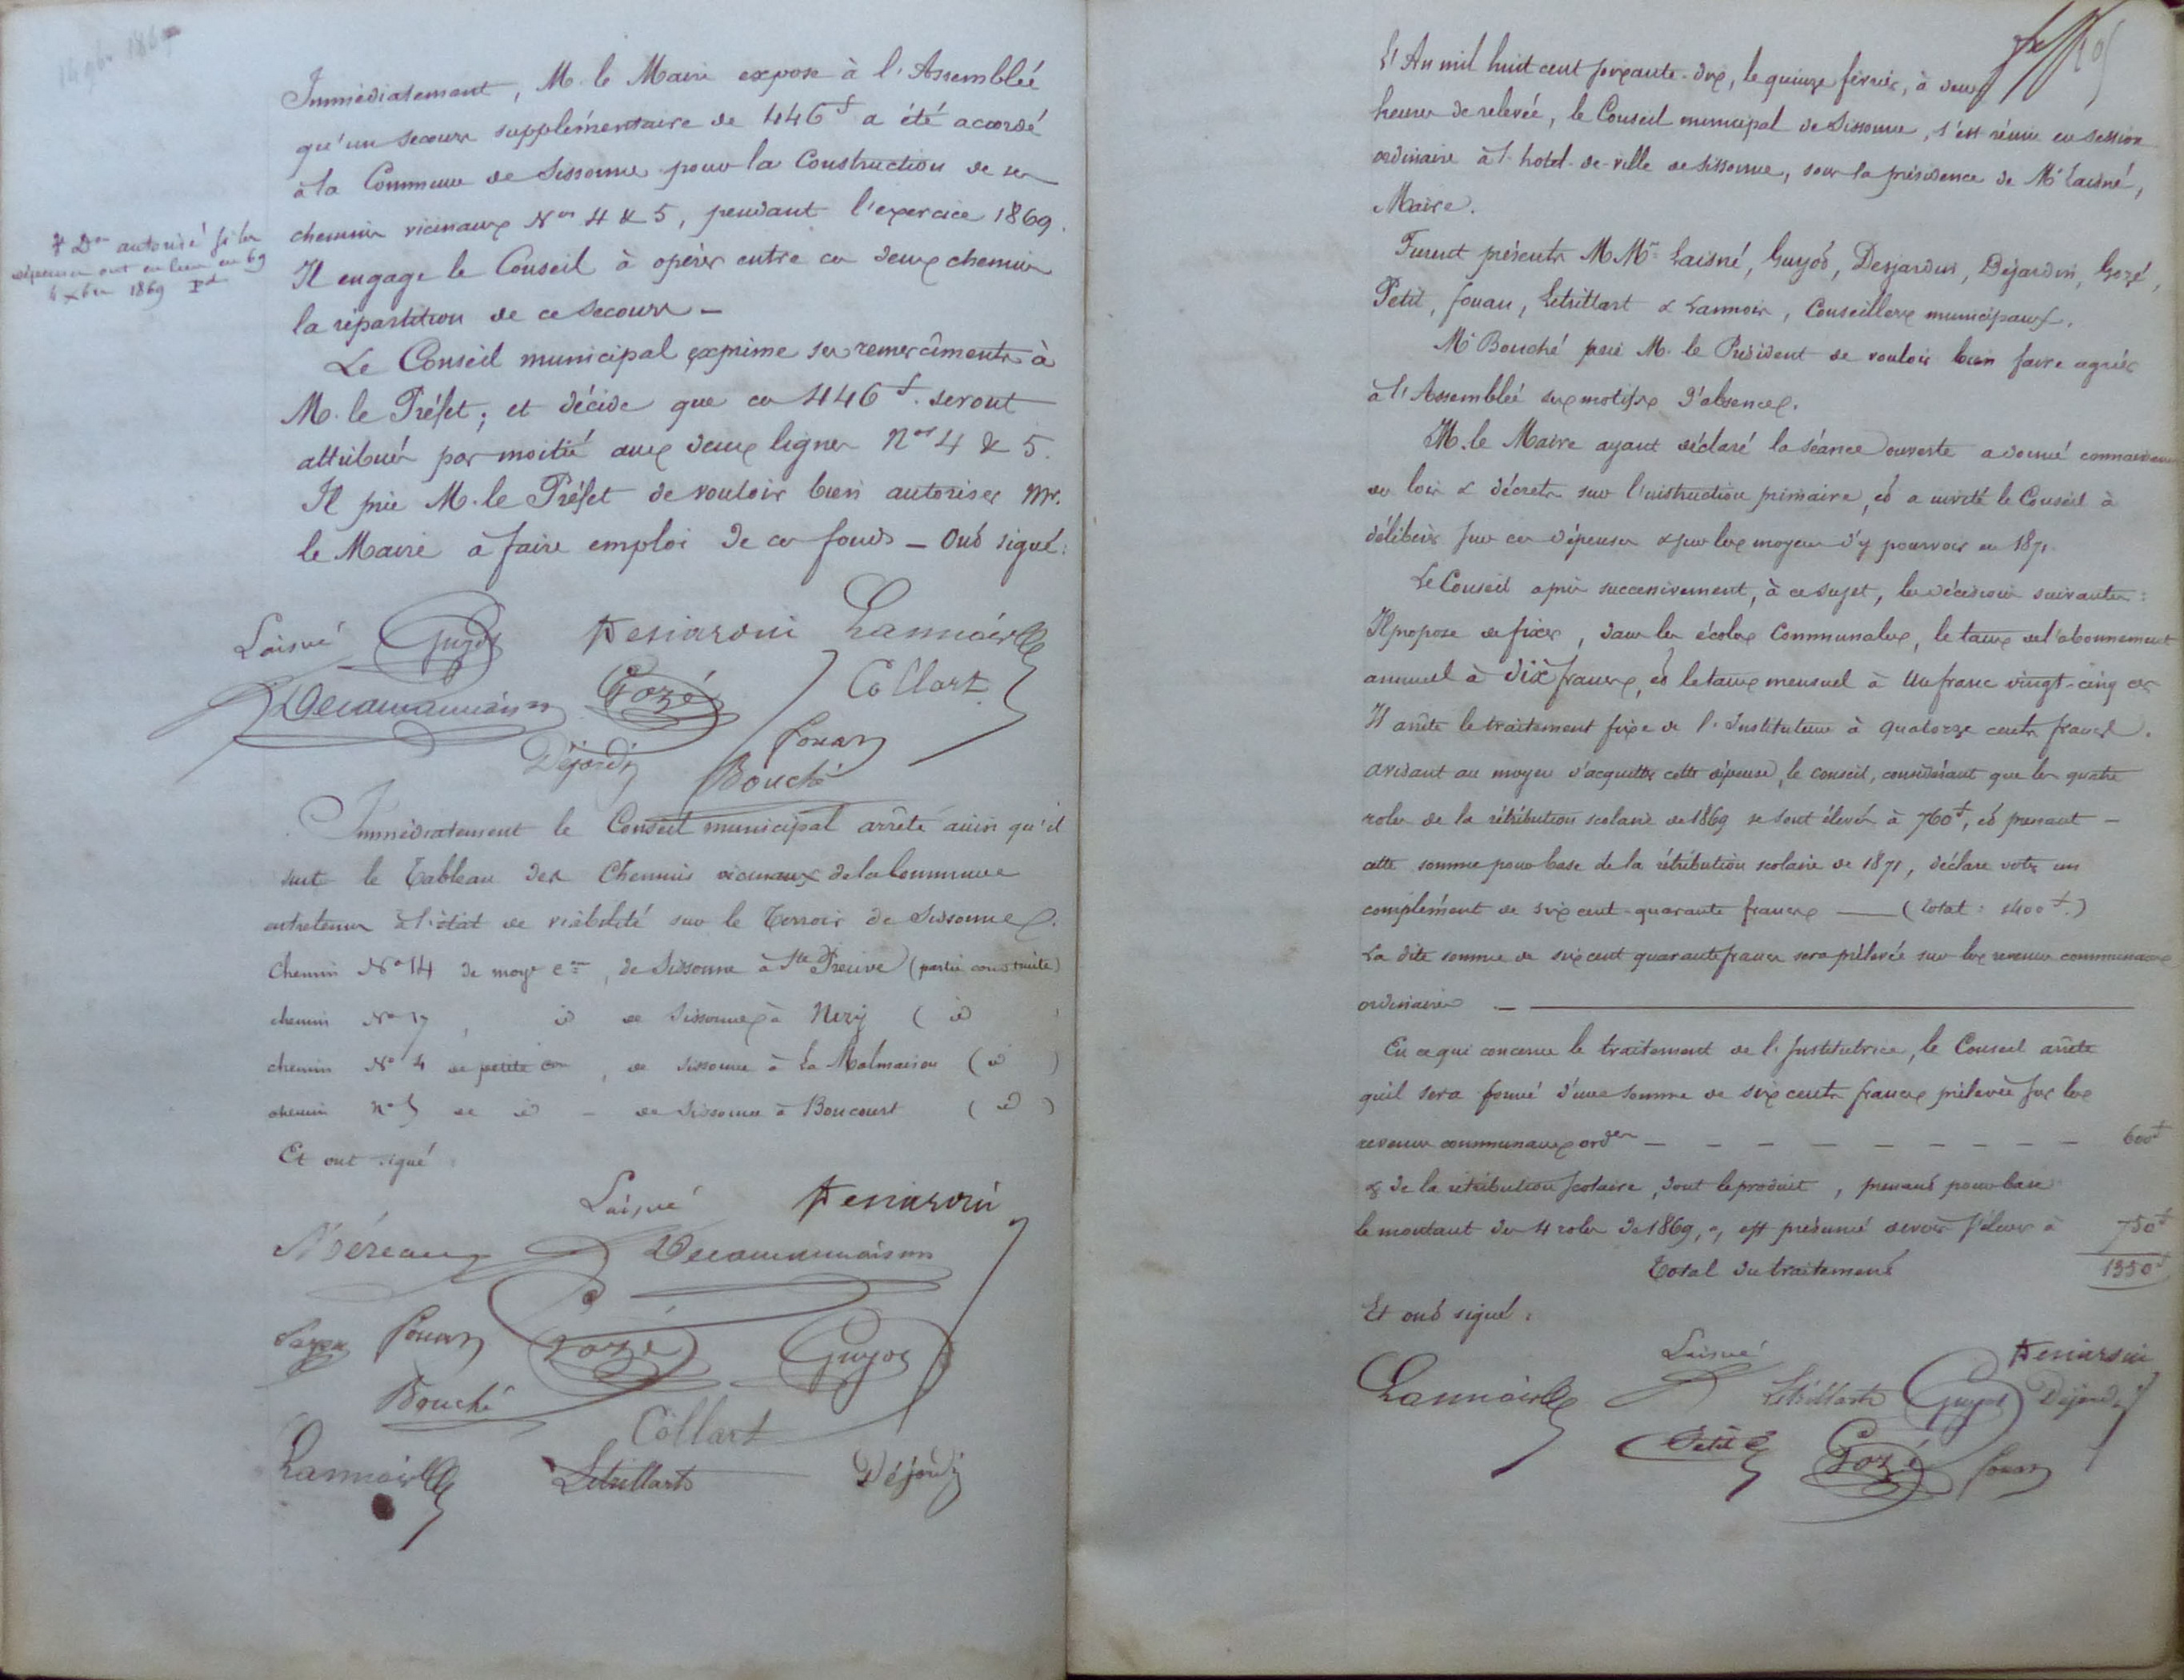 14 9bre 1869
Immédiatement, M. le Maire expose à l'Assemblée
qu'un secours supplémentaire de 446 f a été accordé
à la Commune de Sissonne pour la Construction de ses
chemins vicinaux Nos 4 & 5, pendant l'exercice 1869.
Il engage le Conseil à opérer entre ces deux chemins
la répartition de ce secours —
# Don autorisé si les
dépenses ont eu lieu en 69
4 Xbre 1869
Le Conseil municipal exprime ses remercîments à
M. le Préfet; et décide que ces 446 f. seront
attribués par moitié aux deux lignes nos 4 & 5.
Il prie M. le Préfet de vouloir bien autoriser Mr.
le Maire à faire emploi de ces fonds — Ont signé:
Laisné Guyot Desjardins Lannois
Decamonmaison Gozé Collart
Déjardin Fouan
Bouché
Immédiatement le Conseil municipal arrête ainsi qu'il
suit le Tableau des Chemins vicinaux de la Commune
entretenus à l'état de viabilité sur le Terroir de Sissonne.
Chemin No 14 de moye con, de Sissonne à Ste Preuve (partie construite)
chemin No 17, id de Sissonne à Nizy ( id )
chemin No 4 de petite con, de Sissonne à La Malmaison ( id )
chemin no 5 de id — de Sissonne à Boncourt ( id )
Et ont signé
Laisné Desjardins
Méreau Decamonmaison
Fouan Gozé Guyot
Bouché
Collart
Lannois Létrillart Déjardin
L'An mil huit cent soixante-dix, le quinze février, à deux
heures de relevée, le Conseil municipal de Sissonne, s'est réuni en session
ordinaire à l'hotel-de-ville de Sissonne, sous la présidence de Mr Laisné,
Maire.
Furent présents M.Mrs Laisné, Guyot, Desjardins, Déjardin, Gozé,
Petit, Fouan, Létrillart & Lannois, Conseillers municipaux.
Mr Bouché prie M. le Président de vouloir bien faire agréer
à l'Assemblée ses motifs d'absence.
M. le Maire ayant déclaré la séance ouverte a donné connaissance
des lois & décrets sur l'instruction primaire, et a invité le Conseil à
délibérer sur ces dépenses & sur les moyens d'y pourvoir en 1871.
Le Conseil a pris successivement, à ce sujet, les décisions suivantes:
Il propose de fixer, dans les écoles Communales, le taux de l'abonnement
annuel à dix francs, et le taux mensuel à Un franc vingt-cinq ces
Il arrête le traitement fixe de l'Instituteur à quatorze cents francs.
avisant au moyen d'acquitter cette dépense, le conseil, considérant que les quatre
roles de la rétribution scolaire de 1869 se sont élevés à 760 f, et prenant —
cette somme pour base de la rétribution scolaire de 1871, déclare voter un
complément de six cent quarante francs —— (total: 1400 f.)
La dite somme de six cent quarante francs sera prélevée sur les revenus communaux
ordinaires —
En ce qui concerne le traitement de l'Institutrice, le Conseil arrête
qu'il sera formé d'une somme de six cents francs prélevée sur les
revenus communaux ordres — — — — — — — — — 600 f
& de la rétribution scolaire, dont le produit, prenant pour base
le montant des 4 roles de 1869, est présumé devoir s'élever à 750 f
Total du traitement 1350 f
Et ont signé:
Laisné Desjardins
Lannois Létrillart Guyot Déjardin
Petit Gozé Fouan